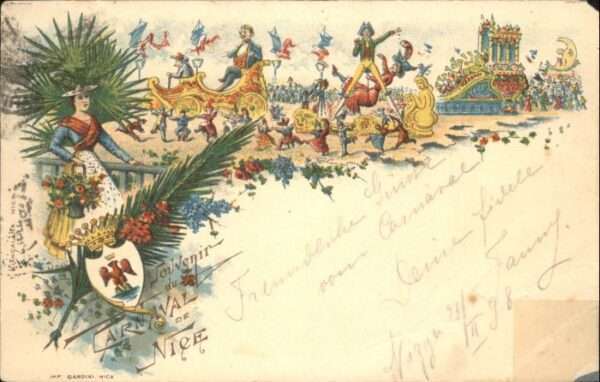 Souvenir
du
CARNAVAL
DE
NICE
Freundliche Grüsse
vom Carneval
Deine fidele
Fanny
Nizza 21/II 98
IMP. GANDINI, NICE